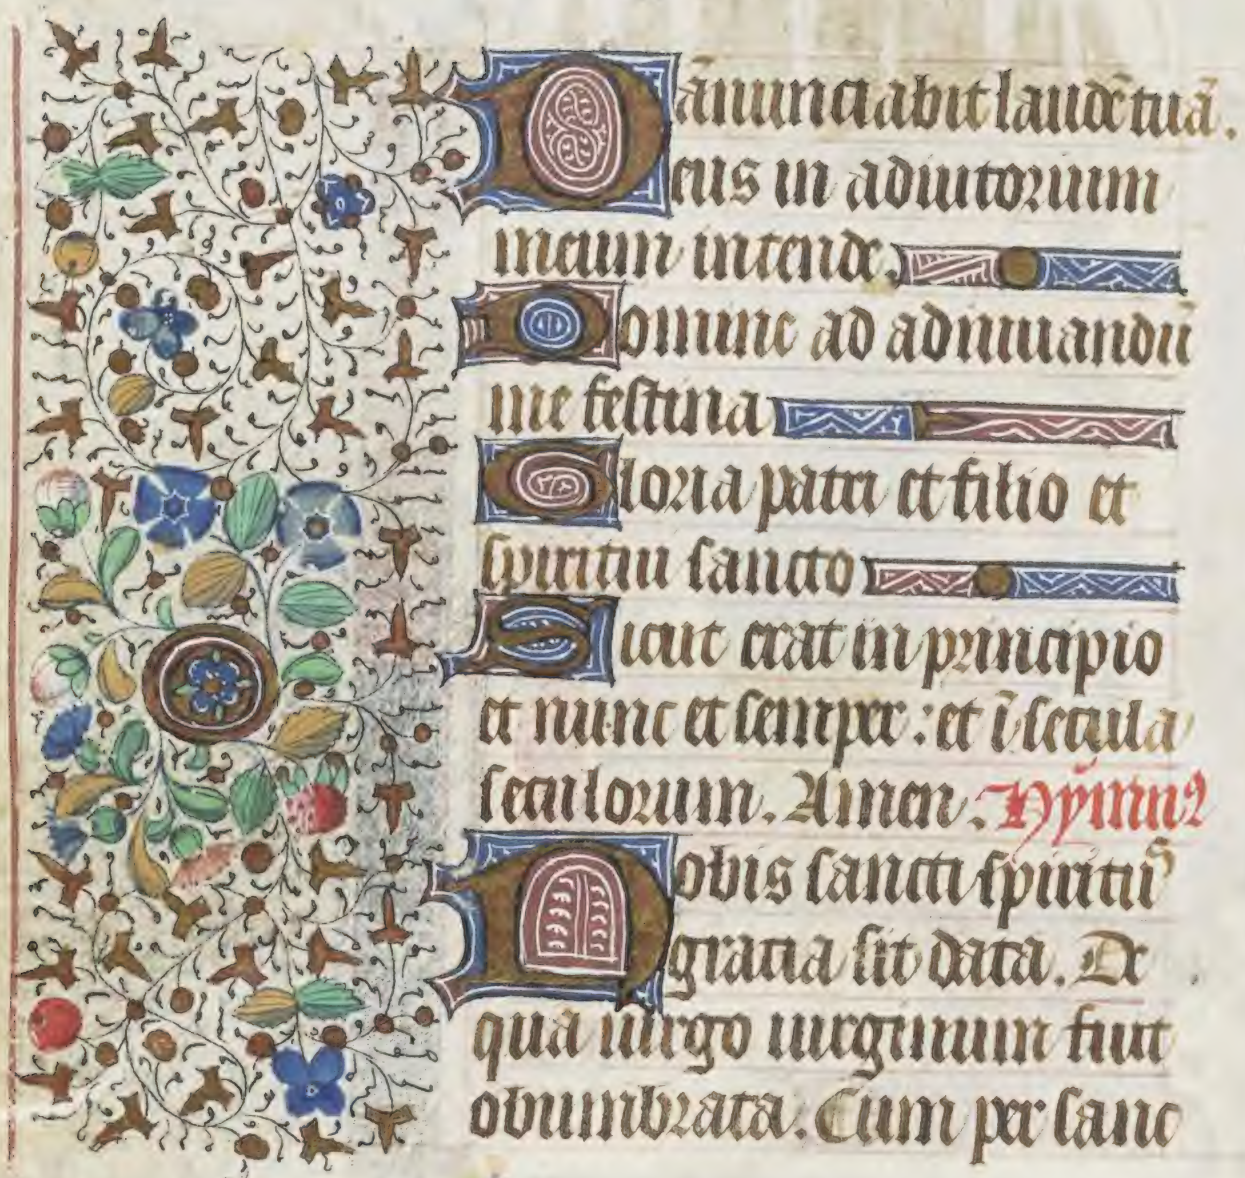 ānunciabit laudē tuā.
Deus in adiutorium
meum intende.
Domine ad adiuuandū
me festina
Gloria patri et filio et
spiritui sancto
Sicut erat in principio
et nunc et semper: et ī secula
seculorum. Amen. Hȳmnꝰ
Nobis sancti spiritꝰ
gracia sit data. De
qua uirgo uirginum fuit
obumbrata. Cum per sanc